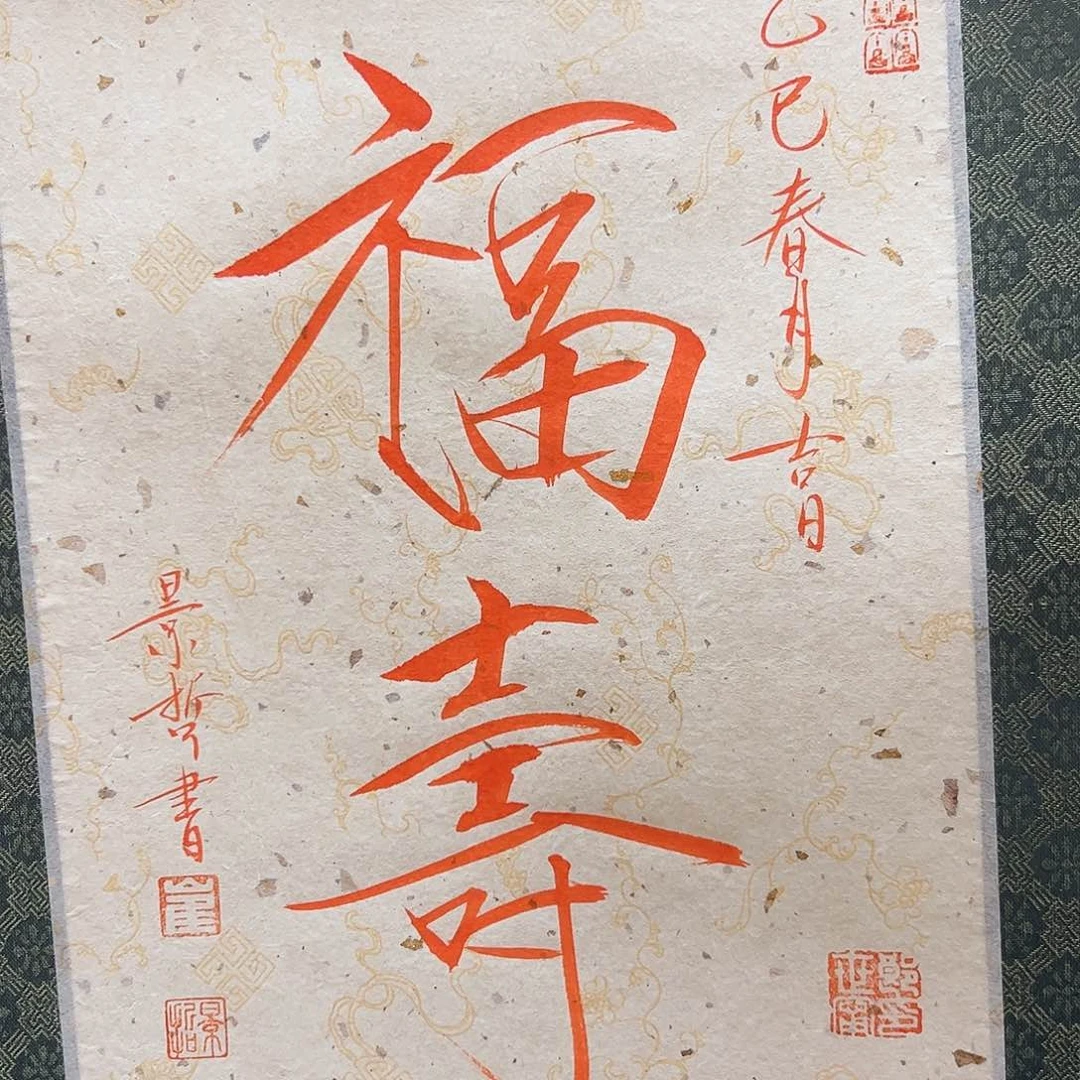 乙巳春月吉日
福壽
景哲書
景哲